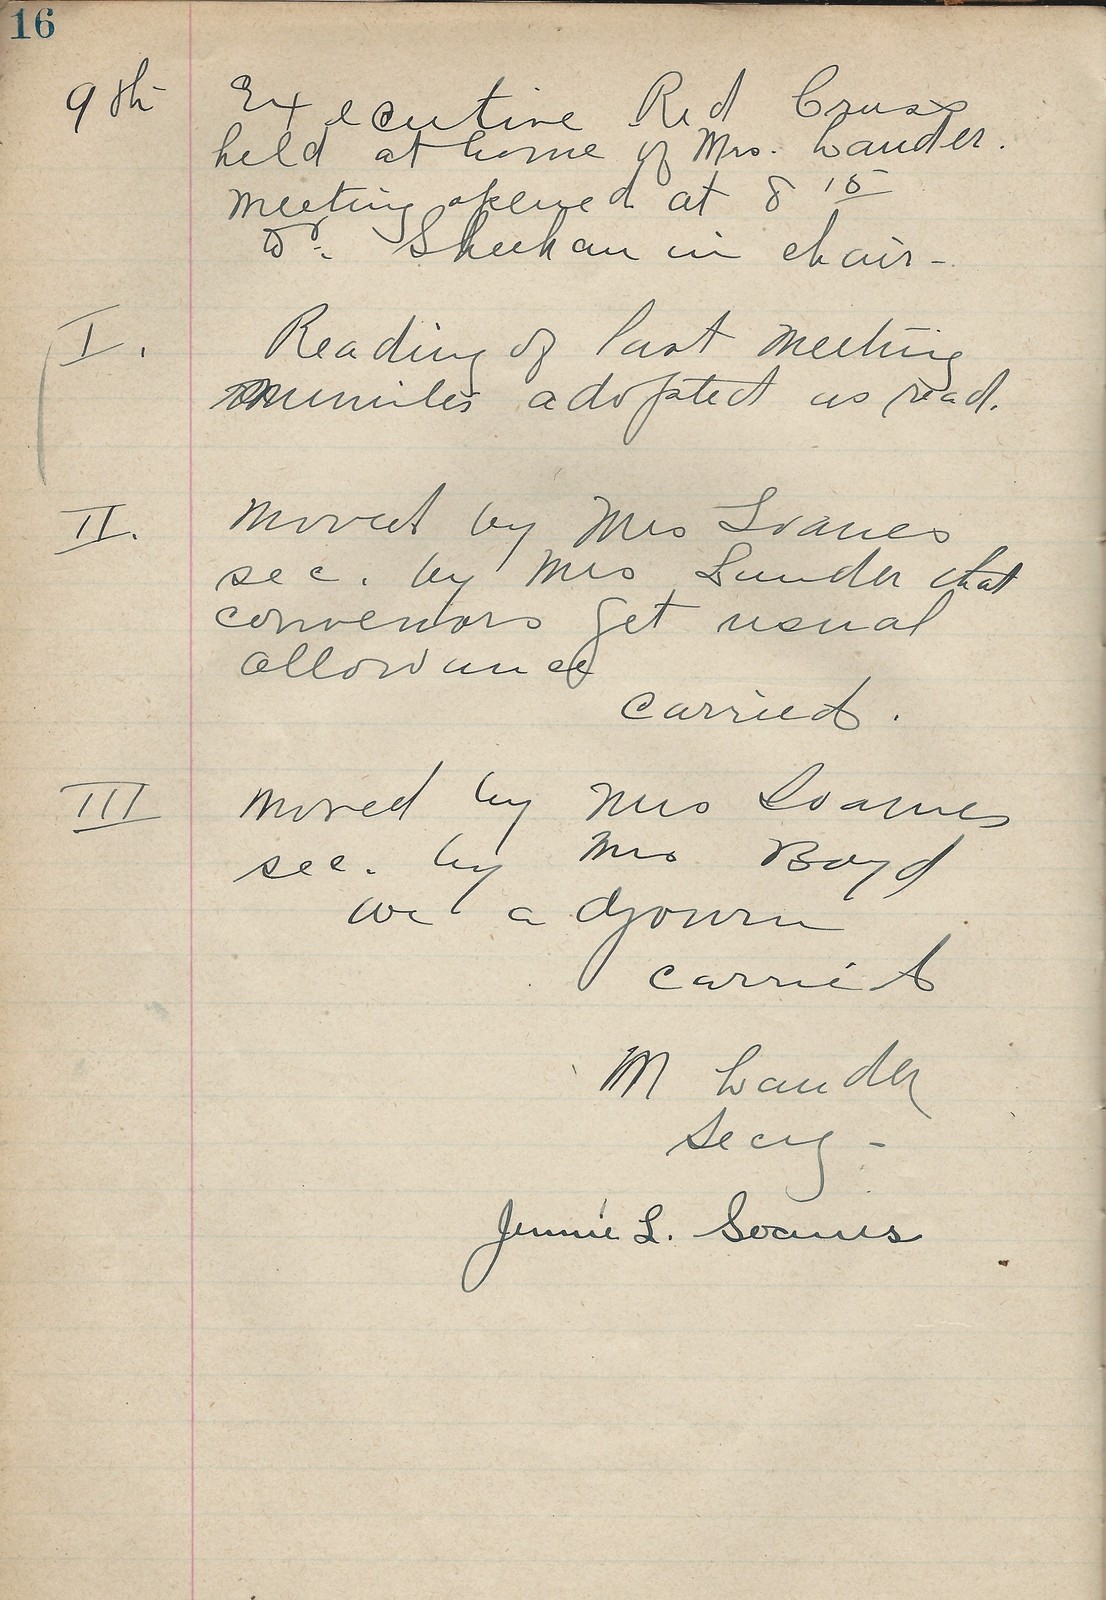 16
9th Executive Red Cross
held at home of Mrs. Lauder.
Meeting opened at 8 15
Dr. Sheehan in chair -
I. Reading of last meeting
minutes adopted as read.
II. Moved by Mrs Soanes
sec. by Mrs Lauder that
convenors get usual
allowance
carried.
III Moved by Mrs Soames
sec. by Mrs Boyd
we adjourn
carried
M Lauder
Secy -
Jennie L. Soames